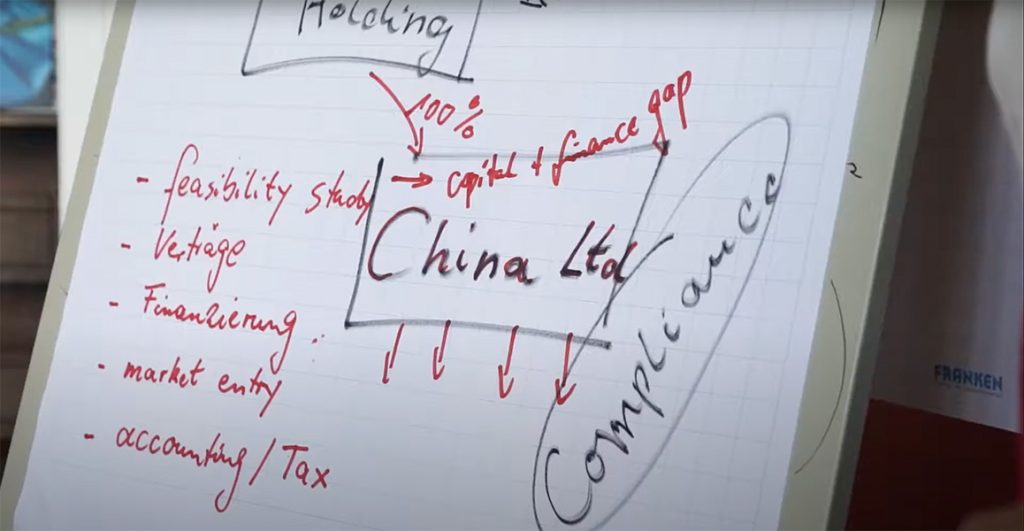 Holding
100%
→ capital + finance gap
China Ltd
- feasibility study
- Verträge
- Finanzierung
- market entry
- accounting / Tax
Compliance
FRANKEN